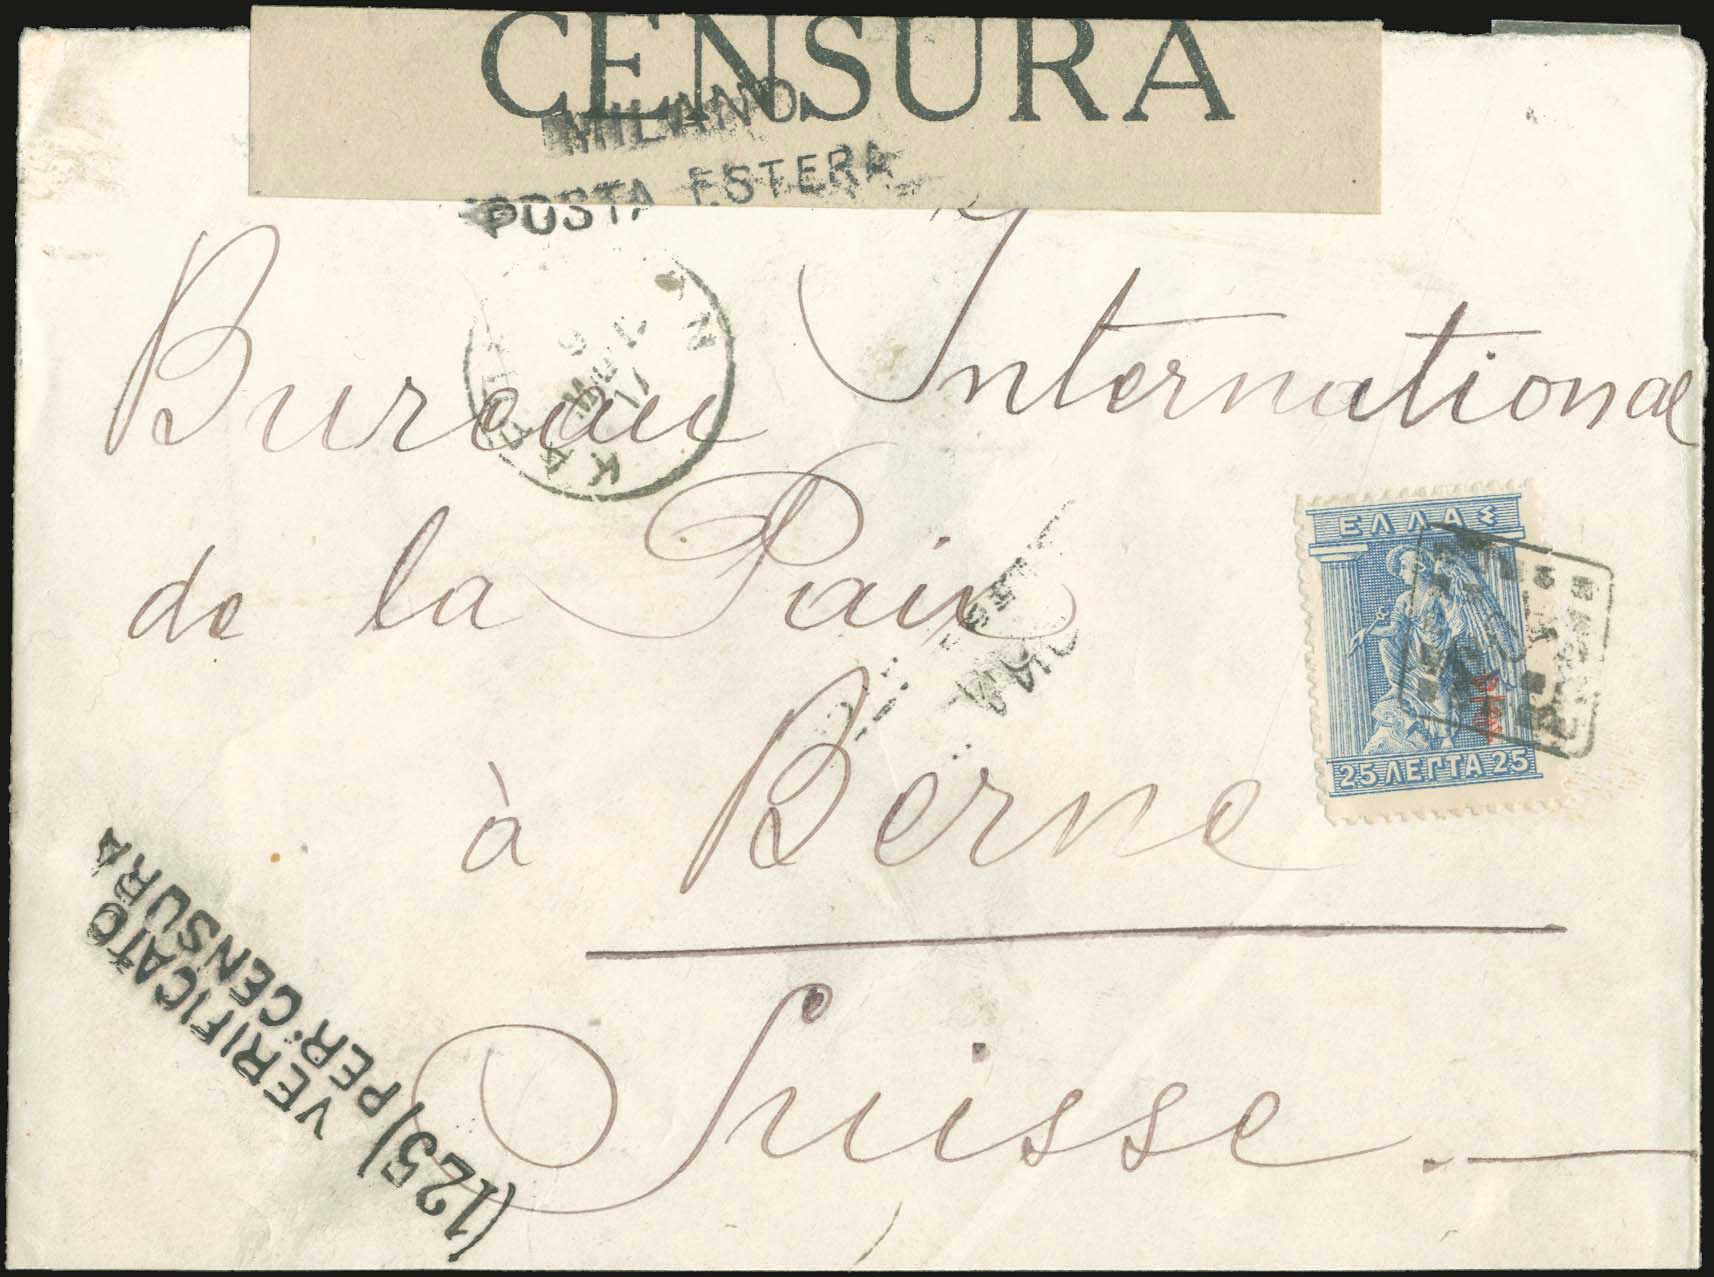 CENSURA
MILANO
POSTA ESTERA
Bureau International
de la Paix
à Berne
Suisse.
ΕΛΛΑΣ
25 ΛΕΠΤΑ 25
VERIFICATO
(125) PER CENSURA